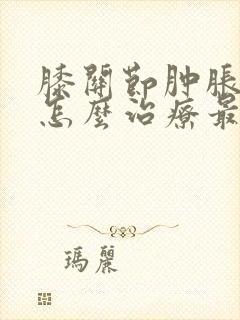 膝關節肿脹
怎麼治療最
瑪麗